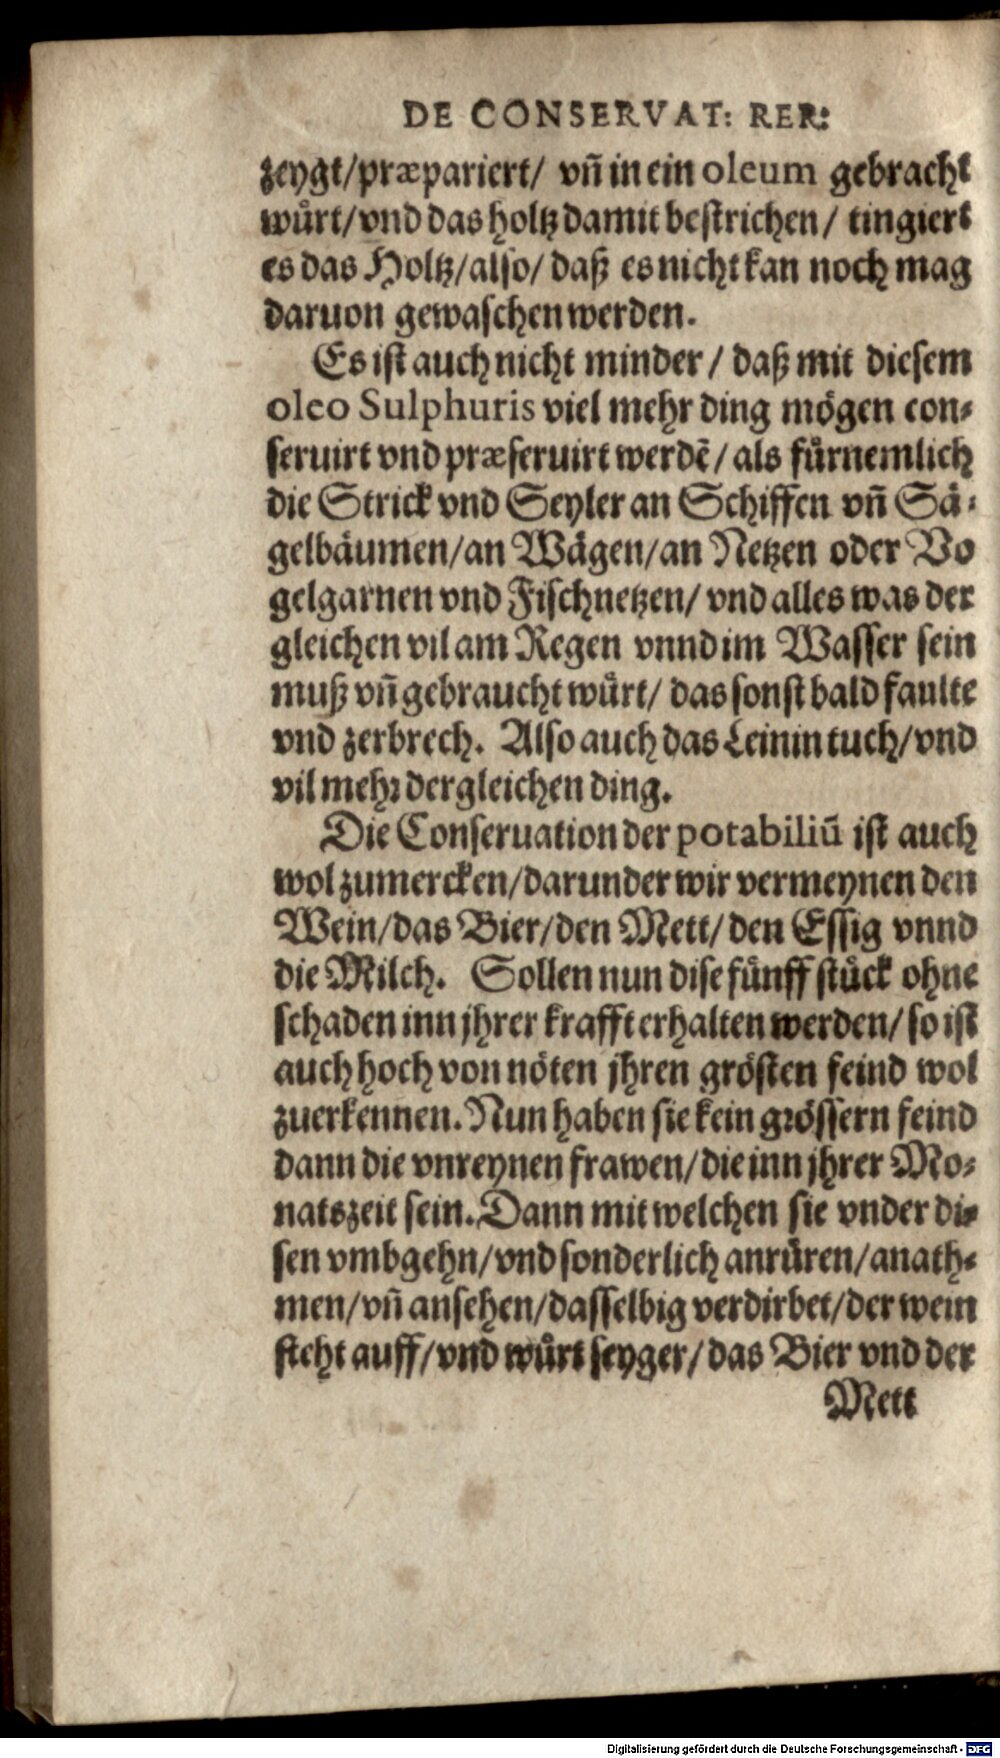 DE CONSERVAT: RER:
zeygt/præpariert/ vñ in ein oleum gebracht
wuͤrt/vnd das holtz damit bestrichen/ tingiert
es das Holtz/also/ daß es nicht kan noch mag
daruon gewaschen werden.
Es ist auch nicht minder/ daß mit diesem
oleo Sulphuris viel mehr ding moͤgen con⸗
seruirt vnd præseruirt werdẽ/ als fuͤrnemlich
die Strick vnd Seyler an Schiffen vñ Saͤ⸗
gelbaͤumen/an Waͤgen/an Netzen oder Vo
gelgarnen vnd Fischnetzen/ vnd alles was der
gleichen vil am Regen vnnd im Wasser sein
muß vñ gebraucht wuͤrt/ das sonst bald faulte
vnd zerbrech. Also auch das Leinin tuch/vnd
vil mehr dergleichen ding.
Die Conseruation der potabiliũ ist auch
wol zumercken/darunder wir vermeynen den
Wein/das Bier/den Mett/ den Essig vnnd
die Milch. Sollen nun dise fuͤnff stuͤck ohne
schaden inn jhrer krafft erhalten werden/ so ist
auch hoch von noͤten jhren groͤsten feind wol
zuerkennen. Nun haben sie kein groͤssern feind
dann die vnreynen frawen/die inn jhrer Mo⸗
natszeit sein. Dann mit welchen sie vnder di⸗
sen vmbgehn/vnd sonderlich anruͤren/anath⸗
men/vñ ansehen/dasselbig verdirbet/der wein
steht auff/vnd wuͤrt seyger/das Bier vnd der
Mett
Digitalisierung gefördert durch die Deutsche Forschungsgemeinschaft - DFG